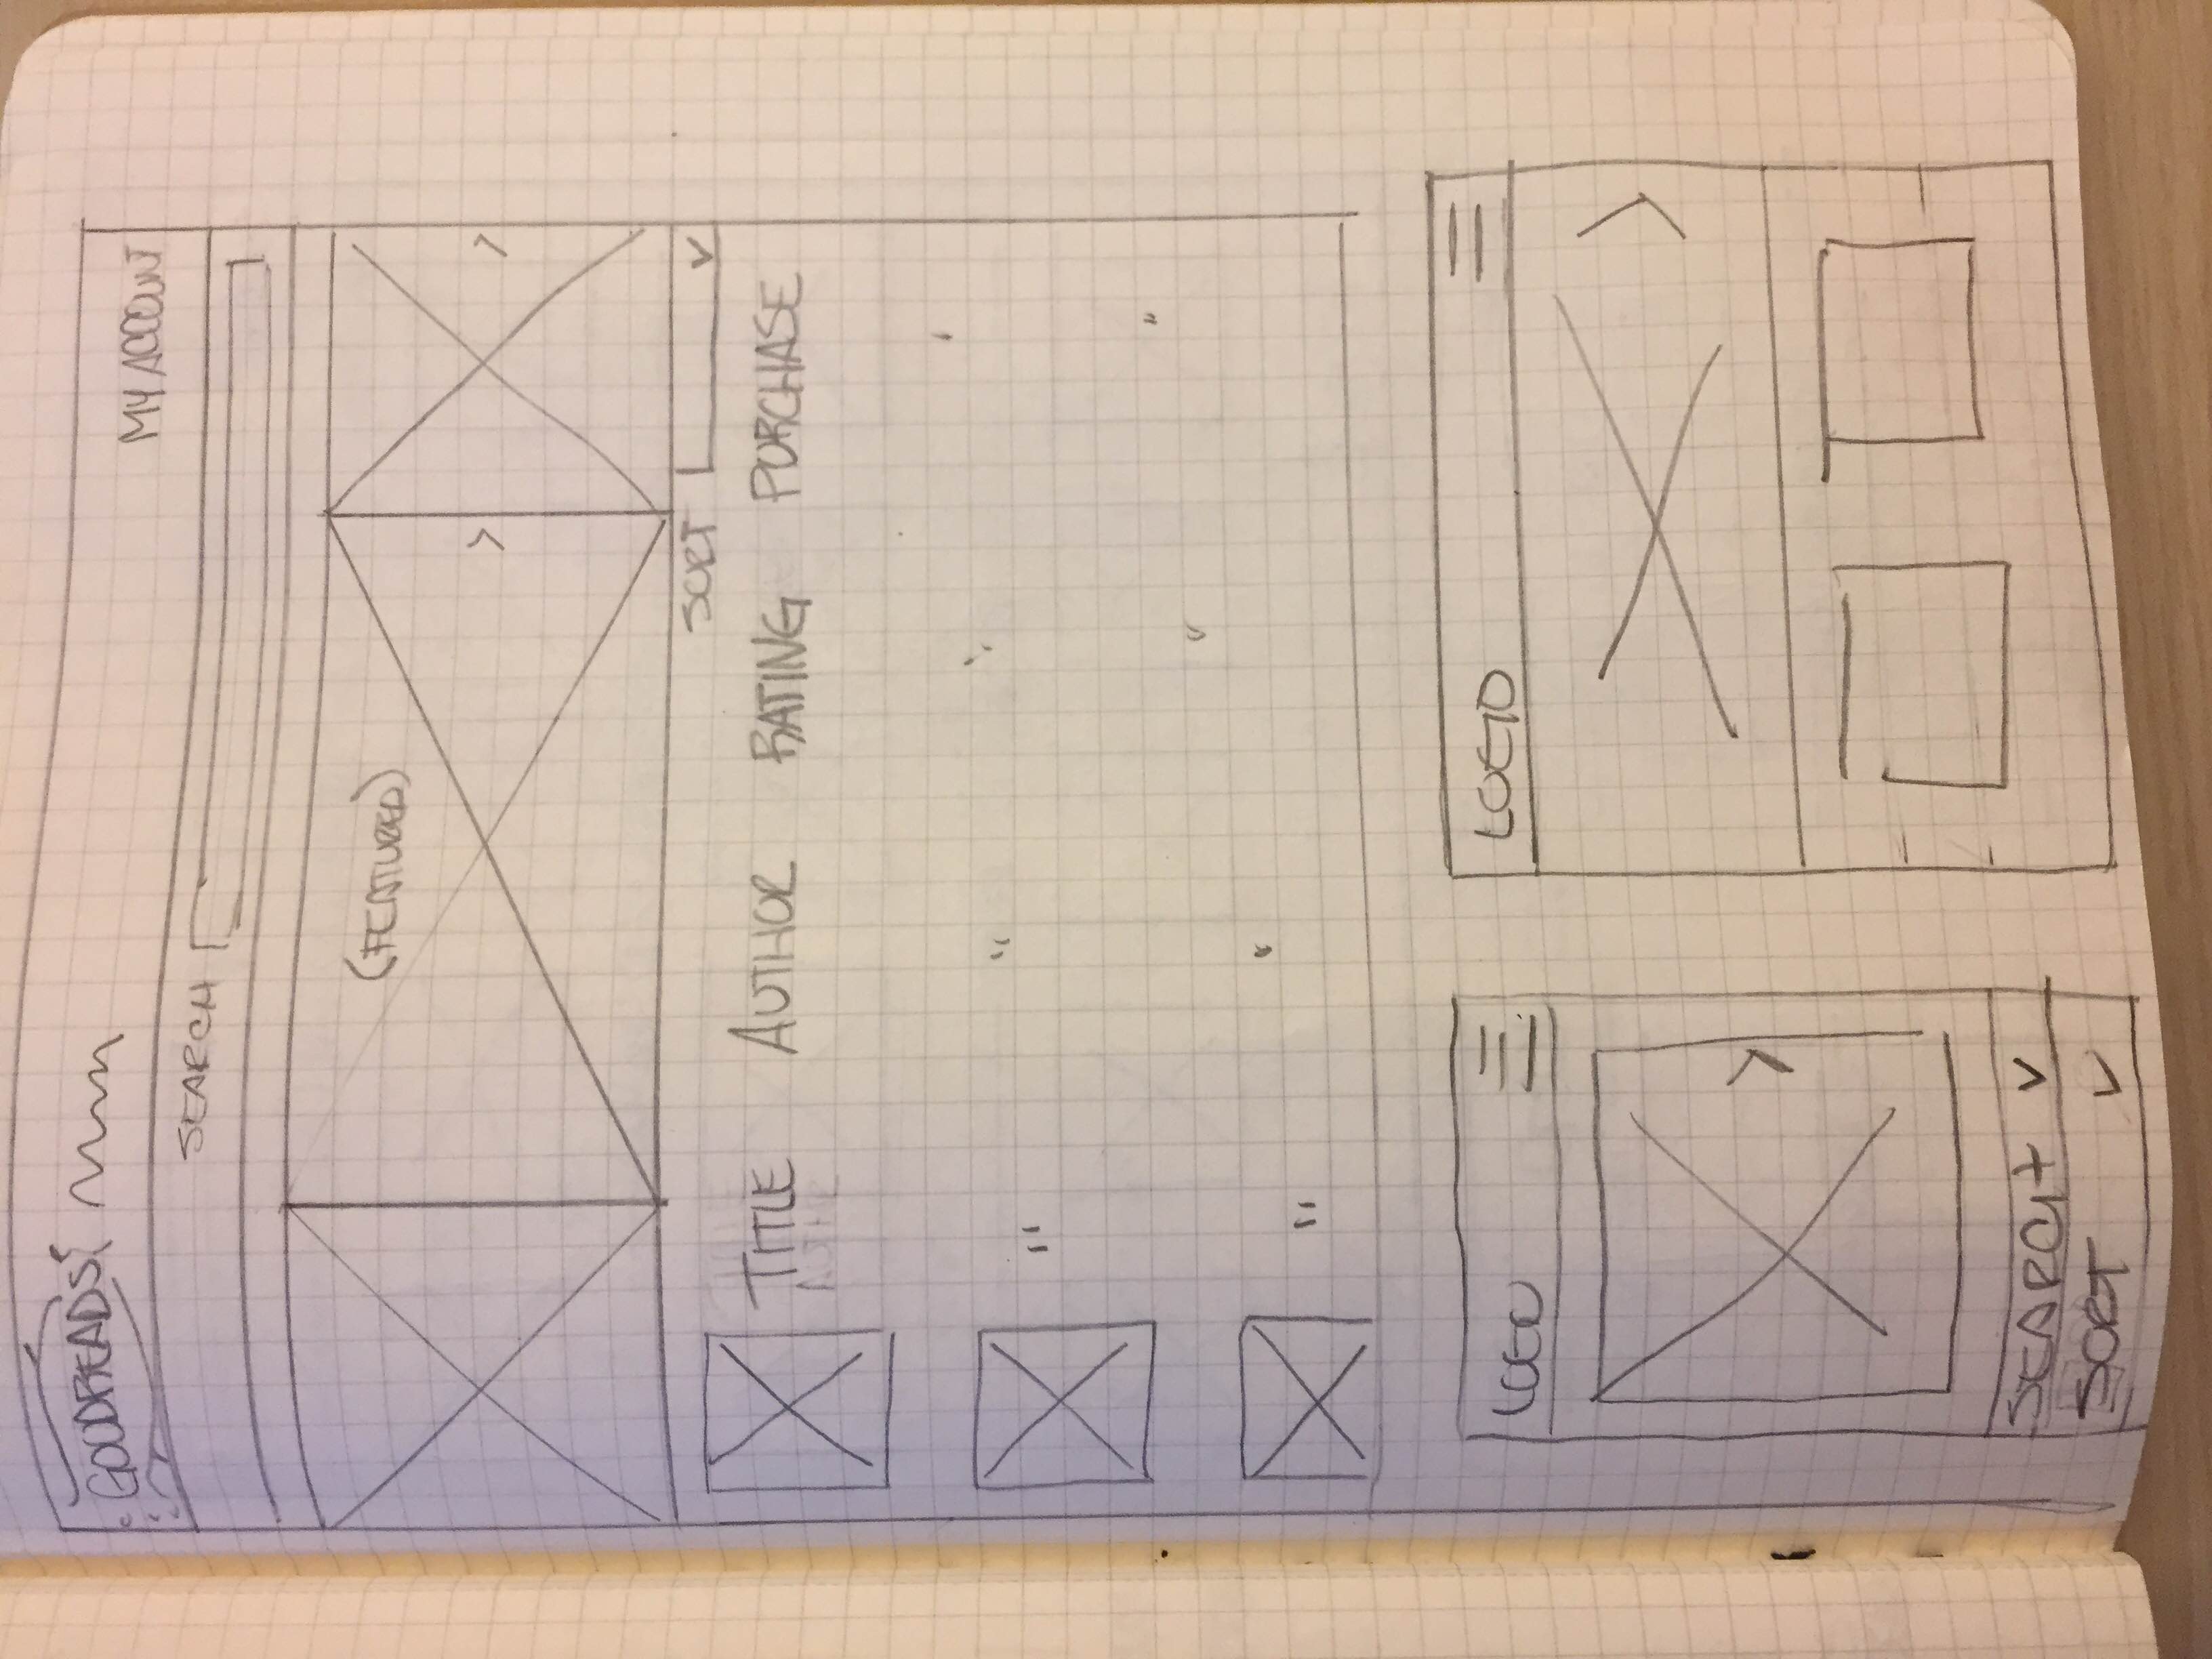 GOODREADS
MY ACCOUNT
SEARCH
(FEATURED)
SORT
TITLE AUTHOR RATING PURCHASE
" " " "
" " " "
LOGO
LOGO
SEARCH
SORT